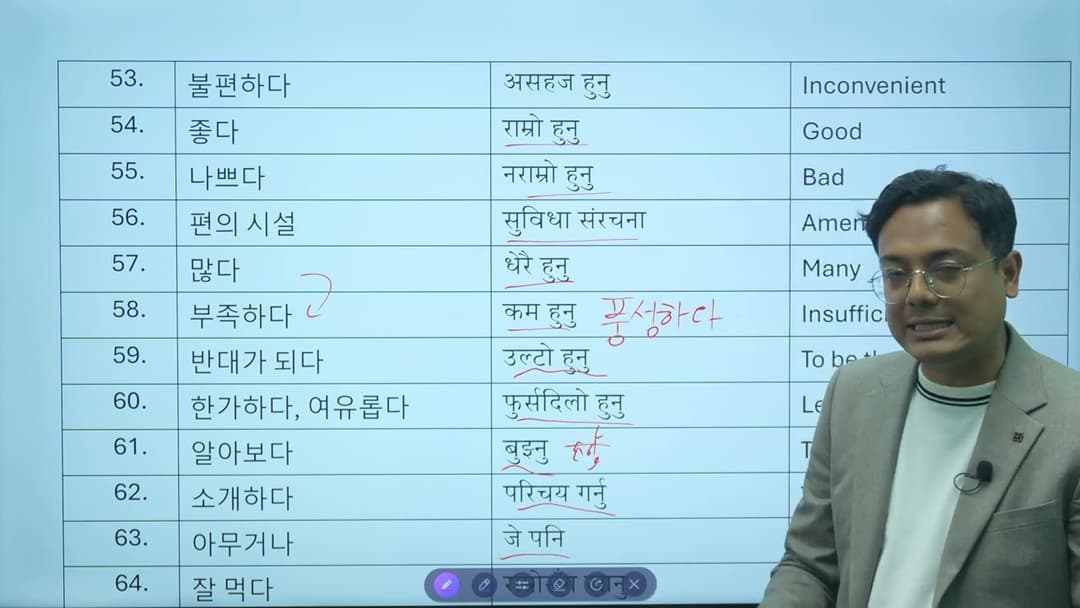 53. 불편하다 असहज हुनु Inconvenient
54. 좋다 राम्रो हुनु Good
55. 나쁘다 नराम्रो हुनु Bad
56. 편의 시설 सुविधा संरचना Amen
57. 많다 धेरै हुनु Many
58. 부족하다 कम हुनु 풍성하다 Insuffic
59. 반대가 되다 उल्टो हुनु To be th
60. 한가하다, 여유롭다 फुर्सदिलो हुनु Le
61. 알아보다 बुझ्नु T
62. 소개하다 परिचय गर्नु
63. 아무거나 जे पनि
64. 잘 먹다